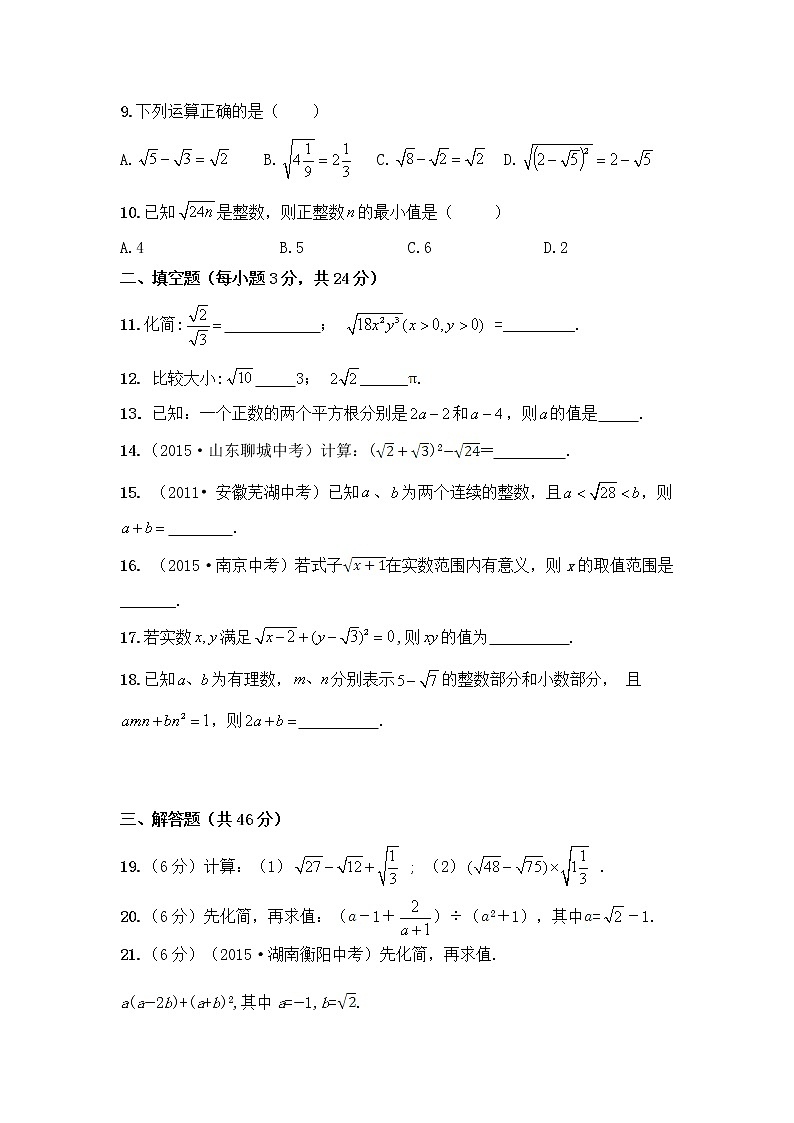 9.下列运算正确的是（　　）
A. √5−√3=√2　B. √(4 1/9)=2 1/3　C. √8−√2=√2　D. √((2−√5)²)=2−√5
10.已知√(24n)是整数，则正整数n的最小值是（　　）
A.4　　B.5　　C.6　　D.2
二、填空题（每小题3分，共24分）
11.化简：√2/√3=____________；√(18x²y³)(x>0,y>0) =_________.
12. 比较大小：√10_____3； 2√2______π.
13. 已知：一个正数的两个平方根分别是2a−2和a−4，则a的值是_____.
14.（2015·山东聊城中考）计算：(√2+√3)²−√24=_________.
15. （2011• 安徽芜湖中考）已知a、b为两个连续的整数，且a<√28<b，则
a+b=________.
16. （2015·南京中考）若式子√(x+1)在实数范围内有意义，则x的取值范围是
_______.
17.若实数x,y满足√(x−2)+(y−√3)²=0,则xy的值为__________.
18.已知a、b为有理数，m、n分别表示5−√7的整数部分和小数部分， 且
amn+bn²=1，则2a+b=__________.
三、解答题（共46分）
19.（6分）计算：（1）√27−√12+√(1/3) ；（2）(√48−√75)×√(1 1/3) .
20.（6分）先化简，再求值：（a－1＋2/(a+1)）÷（a²＋1），其中a=√2－1.
21.（6分）（2015·湖南衡阳中考）先化简，再求值.
a(a−2b)+(a+b)²,其中a=−1,b=√2.